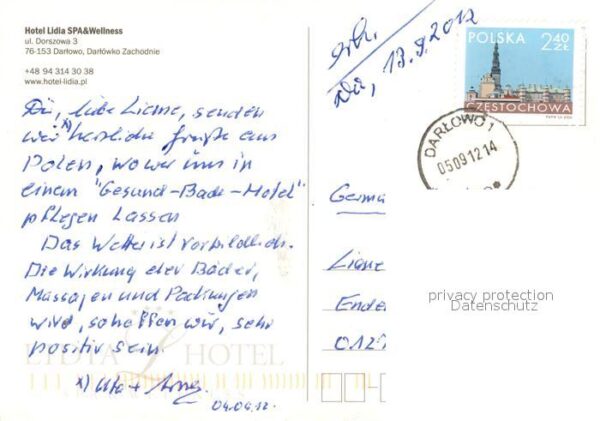 Hotel Lidia SPA&Wellness
ul. Dorszowa 3
76-153 Darłowo, Darłówko Zachodnie
+48 94 314 30 38
www.hotel-lidia.pl
Dir, liebe Liane, senden
wir x) herzliche Grüße aus
Polen, wo wir uns in
einem "Gesund-Bade-Hotel"
pflegen lassen
Das Wetter ist vorbildlich.
Die Wirkung der Bäder,
Massagen und Packungen
wird, so hoffen wir, sehr
positiv sein.
x) Uta +
04.09.12.
LIDIA HOTEL
erh.
13.9.2012
POLSKA 2,40 ZŁ
CZĘSTOCHOWA
DARŁOWO 1
05 09 12 14
Germa
Liane
Ende
0127
privacy protection
Datenschutz